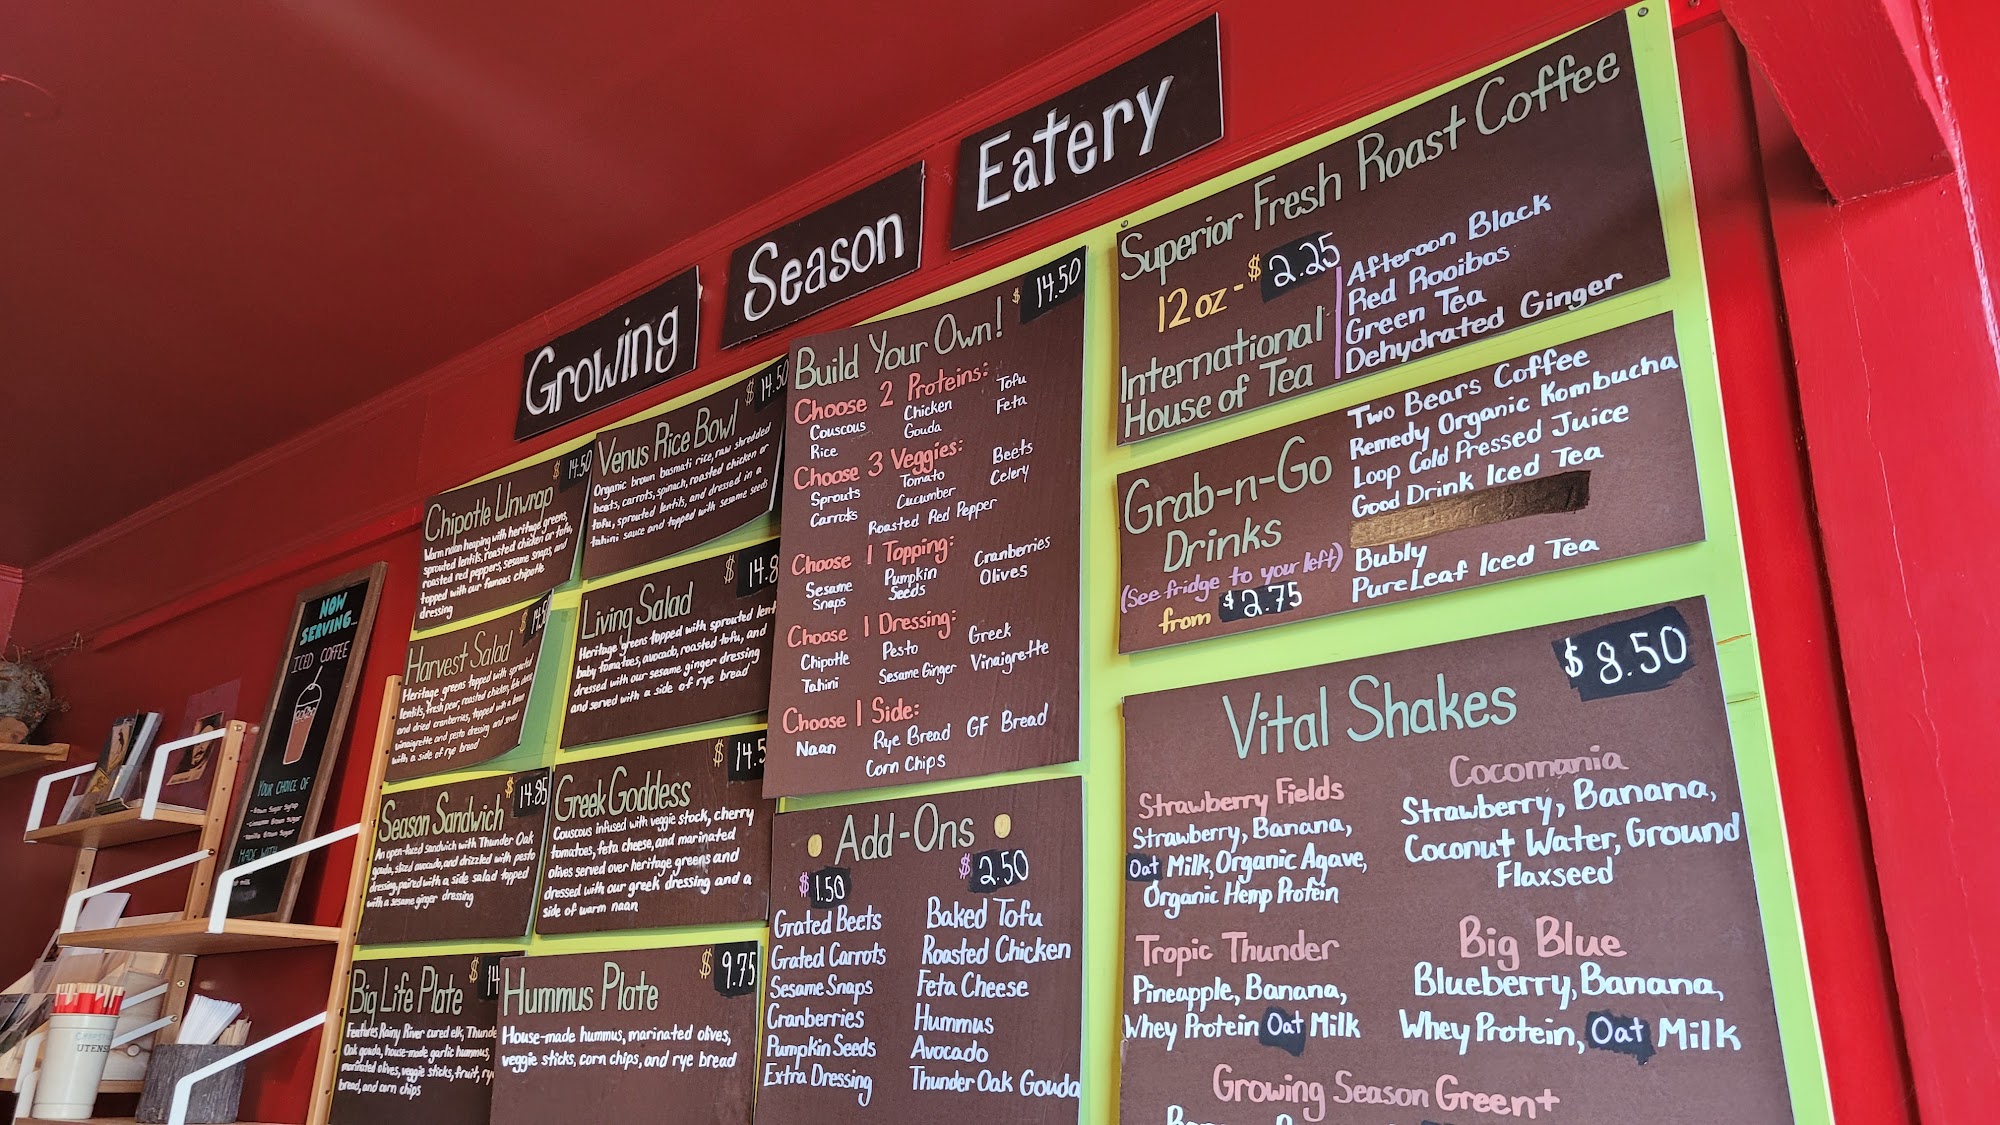 Growing Season Eatery
NOW
SERVING...
ICED COFFEE
YOUR CHOICE OF
- Brown Sugar Syrup
- Cinnamon Brown Sugar
- Vanilla Brown Sugar
MADE WITH
Chipotle Unwrap $14.50
Warm naan heaping with heritage greens,
sprouted lentils, roasted chicken or tofu,
roasted red peppers, sesame snaps, and
topped with our famous chipotle
dressing
Venus Rice Bowl $14.50
Organic brown basmati rice, raw shredded
beets, carrots, spinach, roasted chicken or
tofu, sprouted lentils, and dressed in a
tahini sauce and topped with sesame seeds
Harvest Salad $14.
Heritage greens topped with sprouted
lentils, fresh pear, roasted chicken, feta cheese
and dried cranberries, topped with a
vinaigrette and pesto dressing and served
with a side of rye bread
Living Salad $14.8
Heritage greens topped with sprouted lent
baby tomatoes, avocado, roasted tofu, and
dressed with our sesame ginger dressing
and served with a side of rye bread
Season Sandwich $14.85
An open-faced sandwich with Thunder Oak
gouda, sliced avocado, and drizzled with pesto
dressing, paired with a side salad topped
with a sesame ginger dressing
Greek Goddess $14.5
Couscous infused with veggie stock, cherry
tomatoes, feta cheese, and marinated
olives served over heritage greens and
dressed with our greek dressing and a
side of warm naan
Big Life Plate $14
Features Rainy River cured elk, Thunde
Oak gouda, house-made garlic hummus,
marinated olives, veggie sticks, fruit, ry
bread, and corn chips
Hummus Plate $9.75
House-made hummus, marinated olives,
veggie sticks, corn chips, and rye bread
UTENS
Build Your Own! $14.50
Choose 2 Proteins:
Couscous Chicken Tofu
Rice Gouda Feta
Choose 3 Veggies:
Sprouts Tomato Beets
Carrots Cucumber Celery
Roasted Red Pepper
Choose 1 Topping:
Sesame Snaps Pumpkin Seeds Cranberries
Olives
Choose 1 Dressing:
Chipotle Pesto Greek
Tahini Sesame Ginger Vinaigrette
Choose 1 Side:
Naan Rye Bread GF Bread
Corn Chips
Add-Ons
$1.50 $2.50
Grated Beets Baked Tofu
Grated Carrots Roasted Chicken
Sesame Snaps Feta Cheese
Cranberries Hummus
Pumpkin Seeds Avocado
Extra Dressing Thunder Oak Gouda
Superior Fresh Roast Coffee
12 oz - $2.25
International
House of Tea
Afteroon Black
Red Rooibos
Green Tea
Dehydrated Ginger
Grab-n-Go
Drinks
(See fridge to your left)
from $2.75
Two Bears Coffee
Remedy Organic Kombucha
Loop Cold Pressed Juice
Good Drink Iced Tea
Bubly
PureLeaf Iced Tea
$8.50
Vital Shakes
Strawberry Fields
Strawberry, Banana,
Oat Milk, Organic Agave,
Organic Hemp Protein
Cocomania
Strawberry, Banana,
Coconut Water, Ground
Flaxseed
Tropic Thunder
Pineapple, Banana,
Whey Protein Oat Milk
Big Blue
Blueberry, Banana,
Whey Protein, Oat Milk
Growing Season Green+